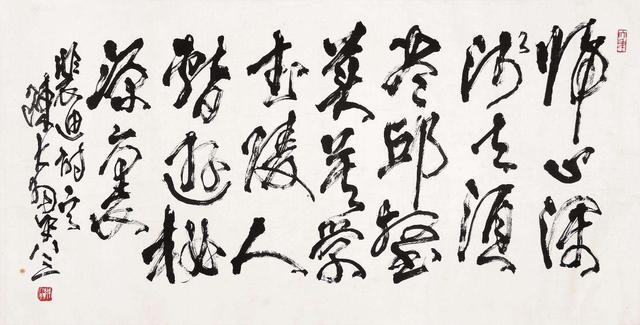 歸山深
淺去須
盡邱壑
美莫學
武陵人
暫遊桃
源裏
裴迪詩
陳大羽 八三